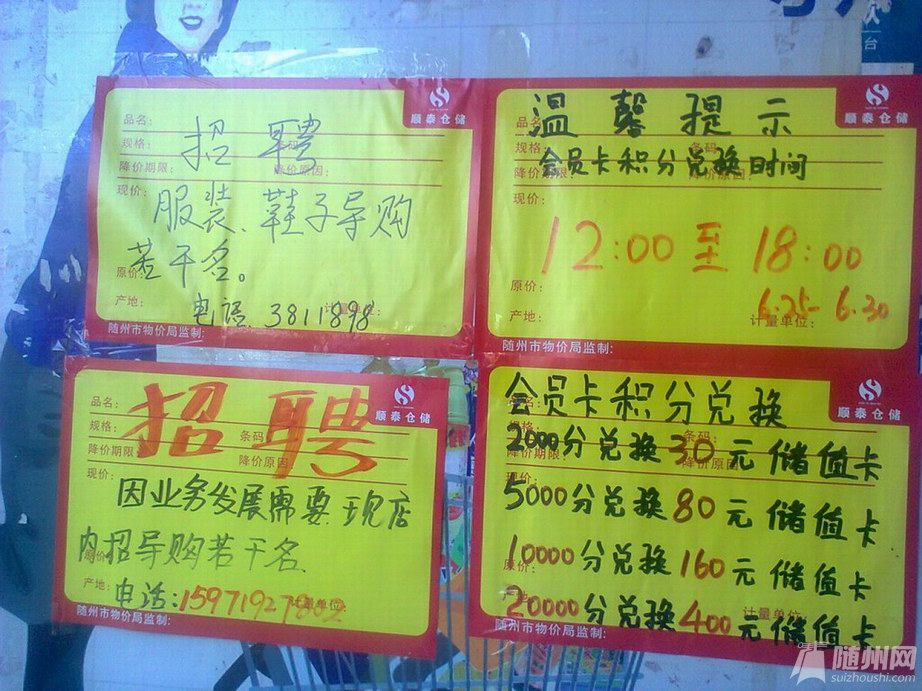 顺泰仓储
品名:
招聘
规格:
条码:
降价期限:
降价原因:
现价:
服装、鞋子导购
若干名。
原价:
产地:
计量单位:
电话 3811898
随州市物价局监制:
顺泰仓储
品名:
温馨提示
规格:
条码:
会员卡积分兑换时间
降价期限:
降价原因:
现价:
12:00至18:00
原价:
6.25-6.30
产地:
计量单位:
随州市物价局监制:
顺泰仓储
品名:
招聘
规格:
条码:
降价期限:
降价原因:
现价:
因业务发展需要现店
内招导购若干名
原价:
产地:
计量单位:
电话:
随州市物价局监制:
顺泰仓储
会员卡积分兑换
规格:
条码:
2000分兑换30元储值卡
降价期限:
降价原因:
现价:
5000分兑换80元储值卡
10000分兑换160元储值卡
原价:
计量单位:
20000分兑换400元储值卡
随州市物价局监制:
随州网
suizhoushi.com